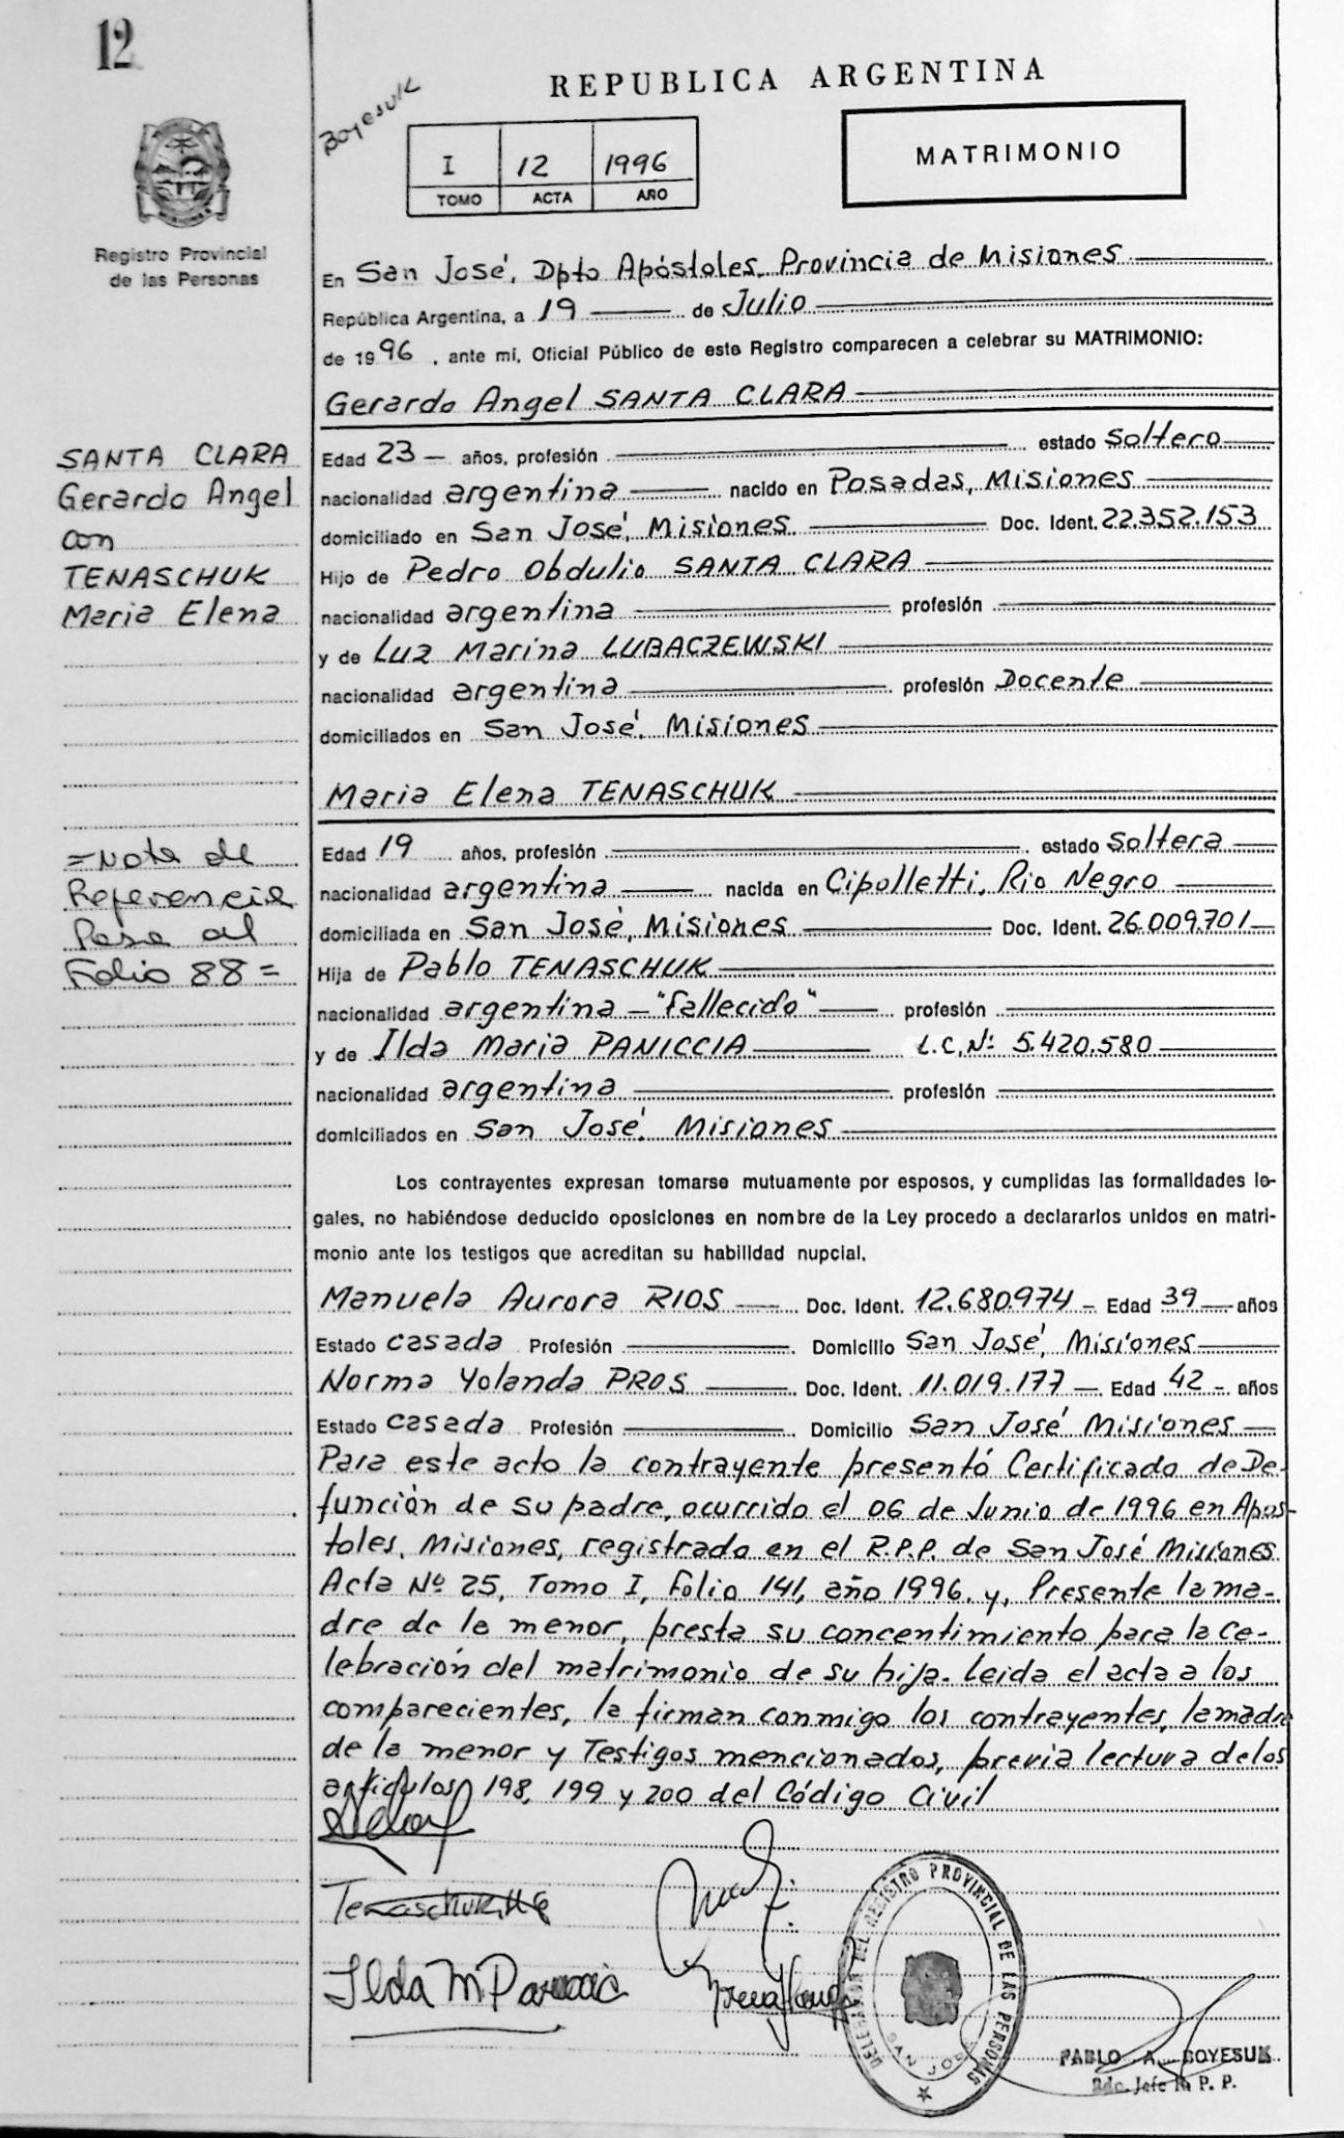 12
REPUBLICA ARGENTINA
Boyesuk
I 12 1996
TOMO ACTA AÑO
MATRIMONIO
Registro Provincial
de las Personas
En San José, Dpto Apóstoles, Provincia de Misiones
República Argentina, a 19 de Julio
de 1996, ante mí, Oficial Público de este Registro comparecen a celebrar su MATRIMONIO:
Gerardo Angel SANTA CLARA
SANTA CLARA
Gerardo Angel
con
TENASCHUK
Maria Elena
Edad 23 años, profesión estado Soltero
nacionalidad argentina nacido en Posadas, Misiones
domiciliado en San José, Misiones Doc. Ident. 22.352.153
Hijo de Pedro Obdulio SANTA CLARA
nacionalidad argentina profesión
y de Luz Marina LUBACZEWSKI
nacionalidad argentina profesión Docente
domiciliados en San José, Misiones
Maria Elena TENASCHUK
=Nota de
Referencia
Pasa al
Folio 88=
Edad 19 años, profesión estado Soltera
nacionalidad argentina nacida en Cipolletti, Rio Negro
domiciliada en San José, Misiones Doc. Ident. 26.009.701
Hija de Pablo TENASCHUK
nacionalidad argentina - "Fallecido" profesión
y de Ilda Maria PANICCIA L.C. Nº 5.420.580
nacionalidad argentina profesión
domiciliados en San José, Misiones
Los contrayentes expresan tomarse mutuamente por esposos, y cumplidas las formalidades le-
gales, no habiéndose deducido oposiciones en nombre de la Ley procedo a declararlos unidos en matri-
monio ante los testigos que acreditan su habilidad nupcial.
Manuela Aurora RIOS Doc. Ident. 12.680.974 - Edad 39 años
Estado casada Profesión Domicilio San José, Misiones
Norma Yolanda PROS Doc. Ident. 11.019.177 - Edad 42 - años
Estado casada Profesión Domicilio San José Misiones
Para este acto la contrayente presentó Certificado de De-
función de su padre, ocurrido el 06 de Junio de 1996 en Após-
toles, Misiones, registrada en el R.P.P. de San José Misiones
Acta Nº 25, Tomo I, Folio 141, año 1996. y, Presente la ma-
dre de la menor, presta su concentimiento para la ce-
lebración del matrimonio de su hija. Leida el acta a los
comparecientes, la firman conmigo los contrayentes, la madre
de la menor y Testigos mencionados, previa lectura de los
artículos 198, 199 y 200 del Código Civil
Ilda M Paniccia
DELEGACION DEL REGISTRO PROVINCIAL DE LAS PERSONAS
SAN JOSE
PABLO A. BOYESUK
P. P.